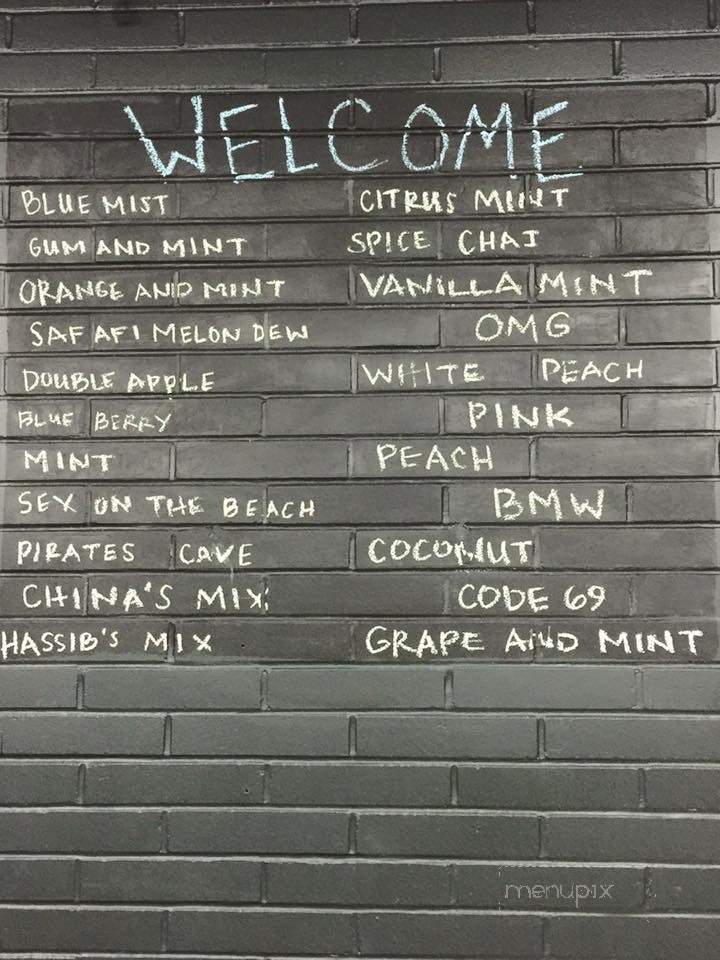 WELCOME
BLUE MIST
GUM AND MINT
ORANGE AND MINT
SAFAFI MELON DEW
DOUBLE APPLE
BLUE BERRY
MINT
SEX ON THE BEACH
PIRATES CAVE
CHINA'S MIX
HASSIB'S MIX
CITRUS MINT
SPICE CHAI
VANILLA MINT
OMG
WHITE PEACH
PINK
PEACH
BMW
COCONUT
CODE 69
GRAPE AND MINT
menupix